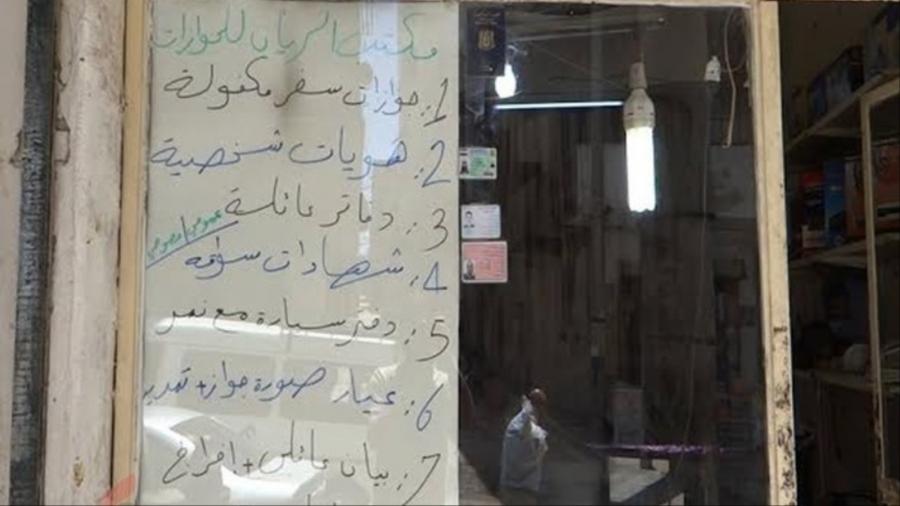 مكتب الريان للجوازات
1: جوازات سفر مكفولة
2: هويات شخصية
3: دفاتر عائلية
4: شهادات سواقة عمومي / خصوصي
5: دفتر سيارة مع نمر
6: عيار صورة جواز + تمديد
7: بيان عائلي + اخراج